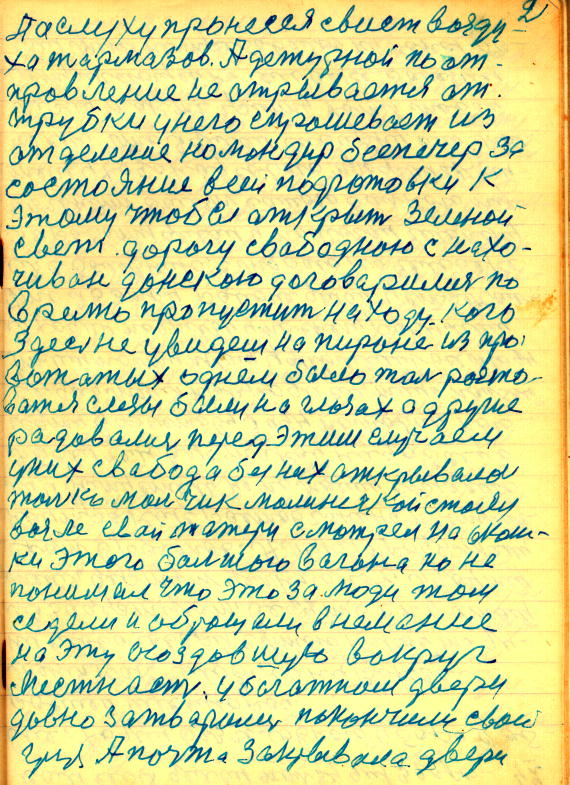 2
Паслуху пронесся свист возду-
ха тармазов. А дежурной по от-
провление не отрывается от.
трубки у него спрошевает из
отделение командир
состояние всей подготовки к
этому чтобы открыт Зеленой
свет. дорогу свабодною с нахо-
чиван донскою договарился по
время пропустит находу. кого
Здесь не увидеш на пироне из про
вожатых одним было жал раста-
ватся слезы были на глазах а другие
радовался перед этим случаем
у них свабода без них открывалас
толко мал чик малинкой стоял
возле свай матери смотрел на окош-
ки этого балшого вагона но не
понимал что это за люди там
седели и оброщали внемание
на эту создавшую вокруг
местнасть. у багатном двери
довно затварили покончили свой
груз А почта Закрывала двери